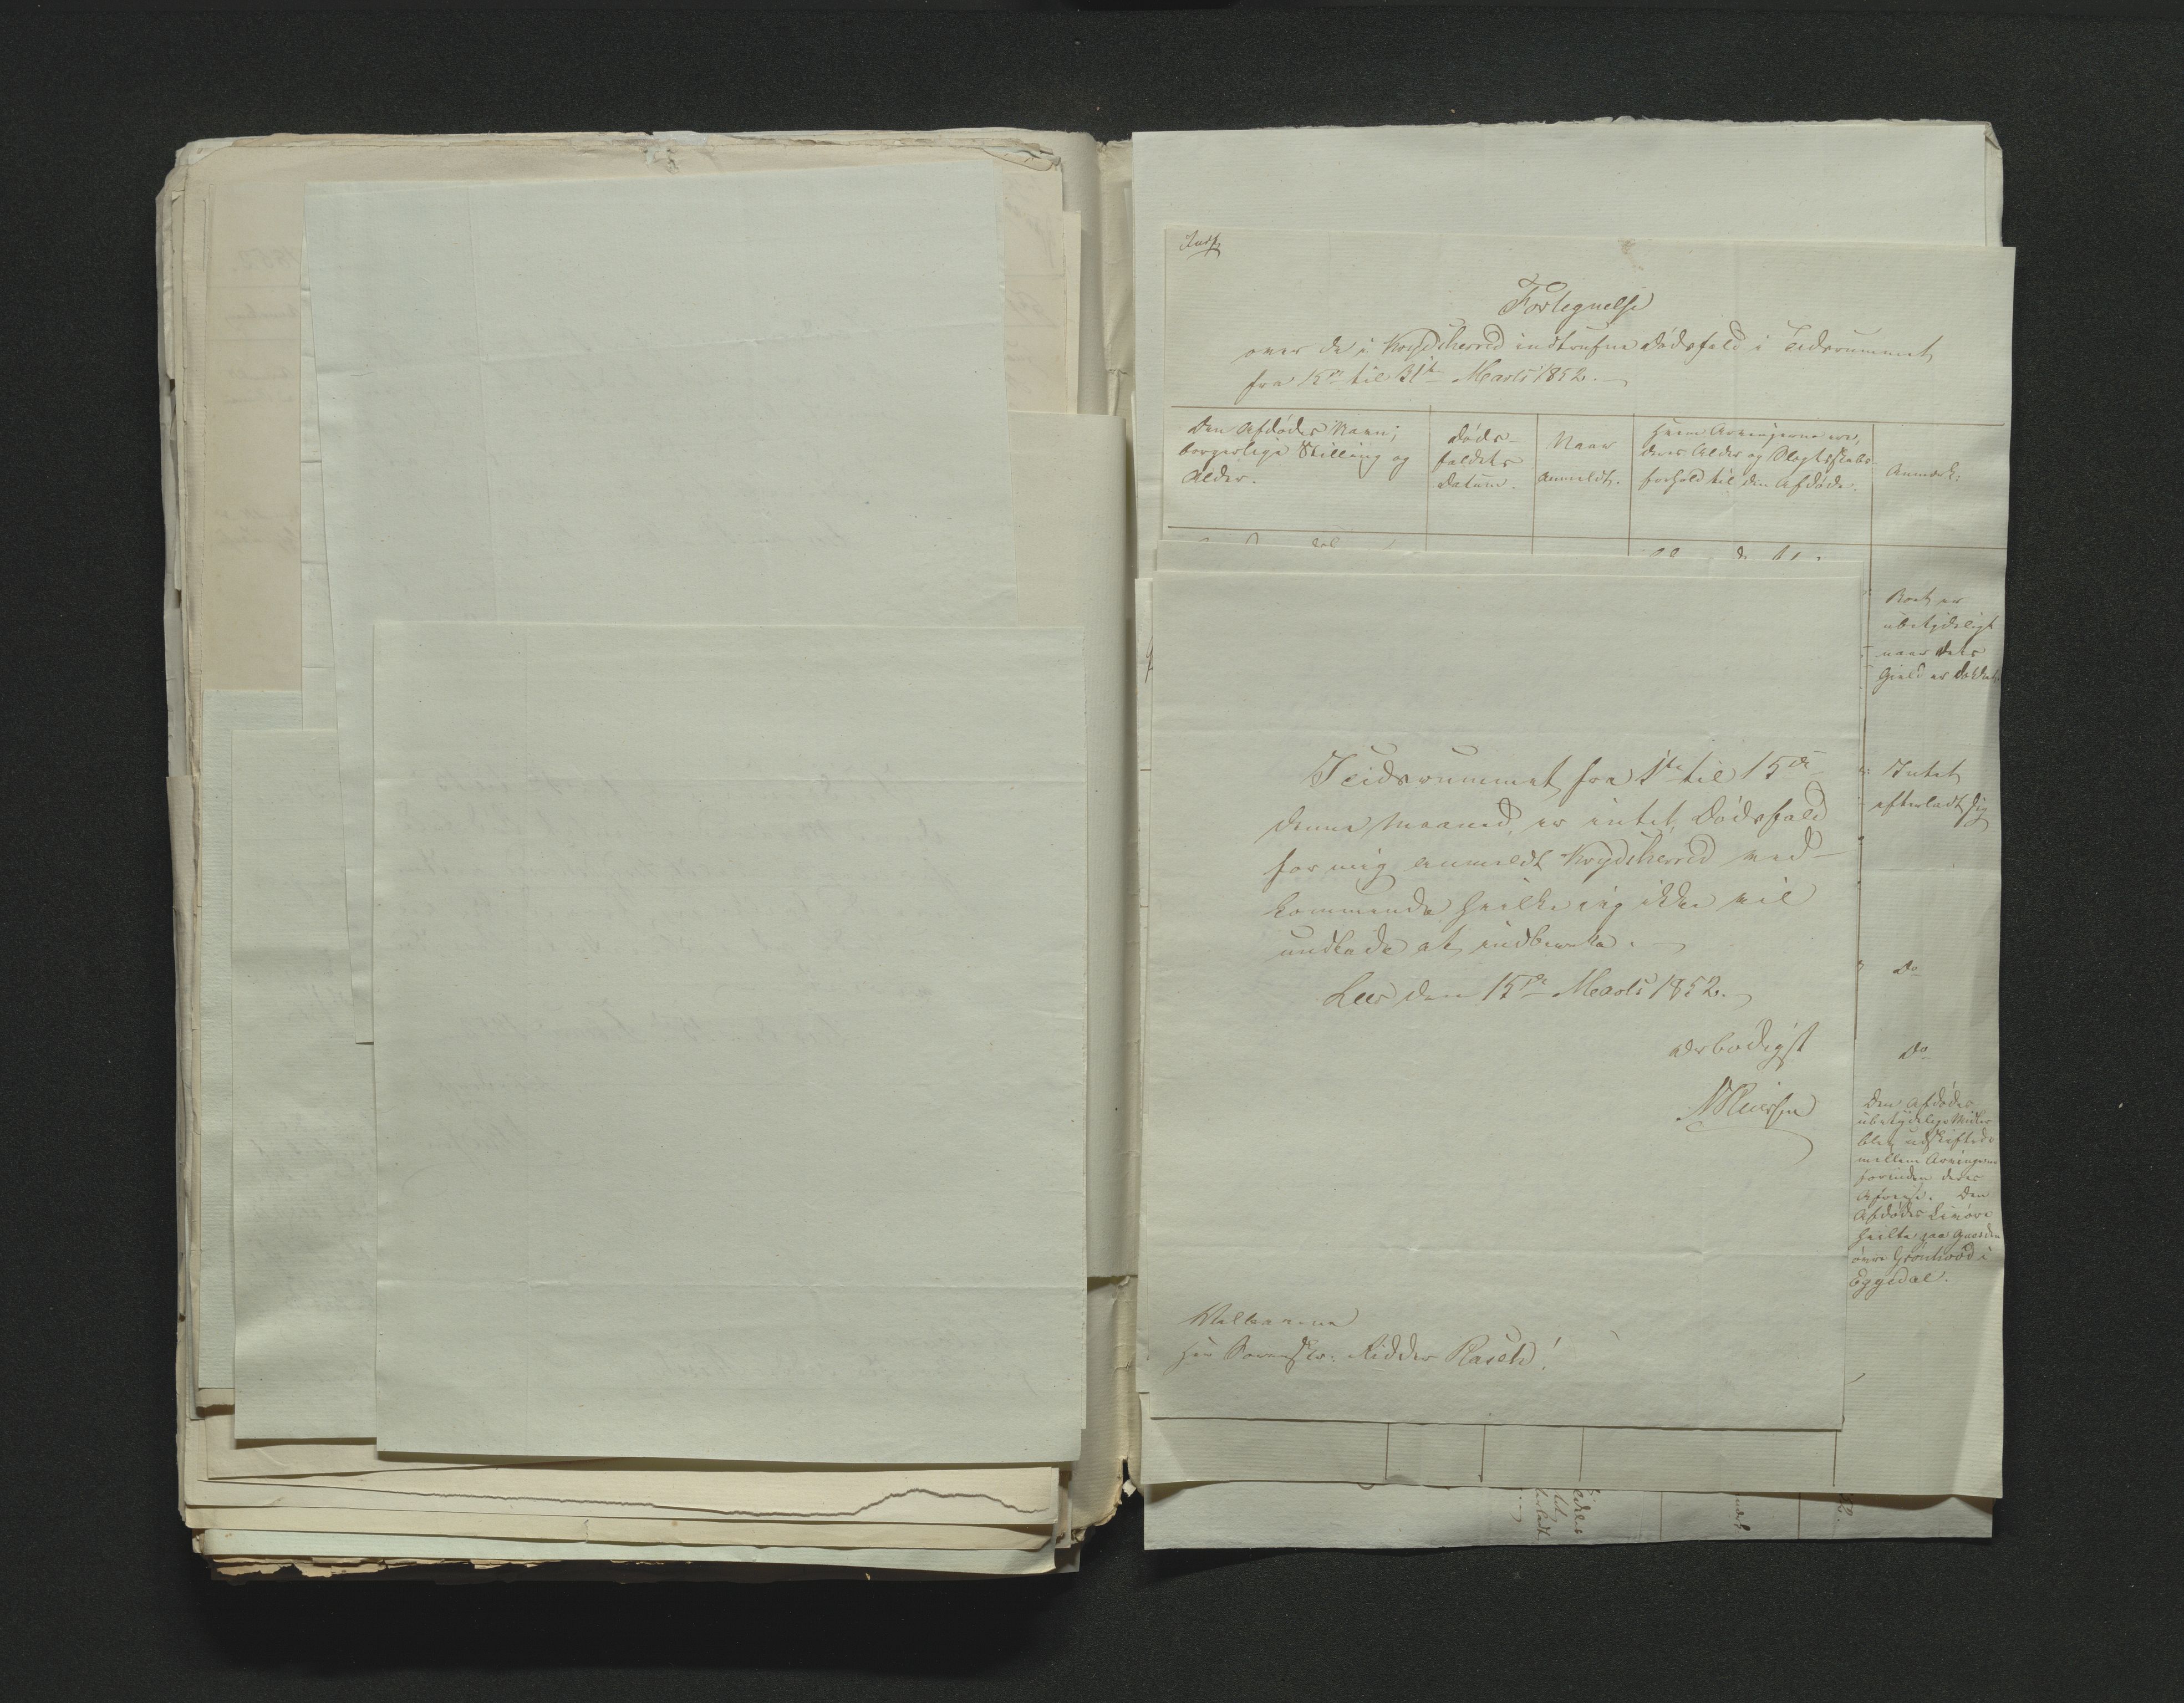 Indf
Fortegnelse
over de i Krydsherred indtrufne Dødsfald i Tidsrummet
fra 15de til 31te Marts 1852.
Den Afdødes Navn,
borgerlige Stilling og
Alder.
Døds-
faldets
Datum.
Naar
anmeldt.
Hvem Arvingerne ere,
deres Alder og Slægtskabs
forhold til den Afdøde.
Anmærk:
Boet er
ubetydeligt
naar dets
Gjeld er
Intet
efterladt sig
Do
Do
Den Afdødes
ubetydelige Midler
blev udskiftede
mellem Arvingerne
forinden deres
Afreise. Den
Afdødes
paa Gaarden
øvre i
Eggedal.
I Tidsrummet fra 1ste til 15de
denne Maaned, er intet Dødsfald
for mig anmeldt Krydsherred ved-
kommende, hvilket jeg ikke vil
undlade at indberette.
Lees den 15de Marts 1852.
Ærbødigst
Velbaarne
Herr Sorenskr: Ridder Rasch!